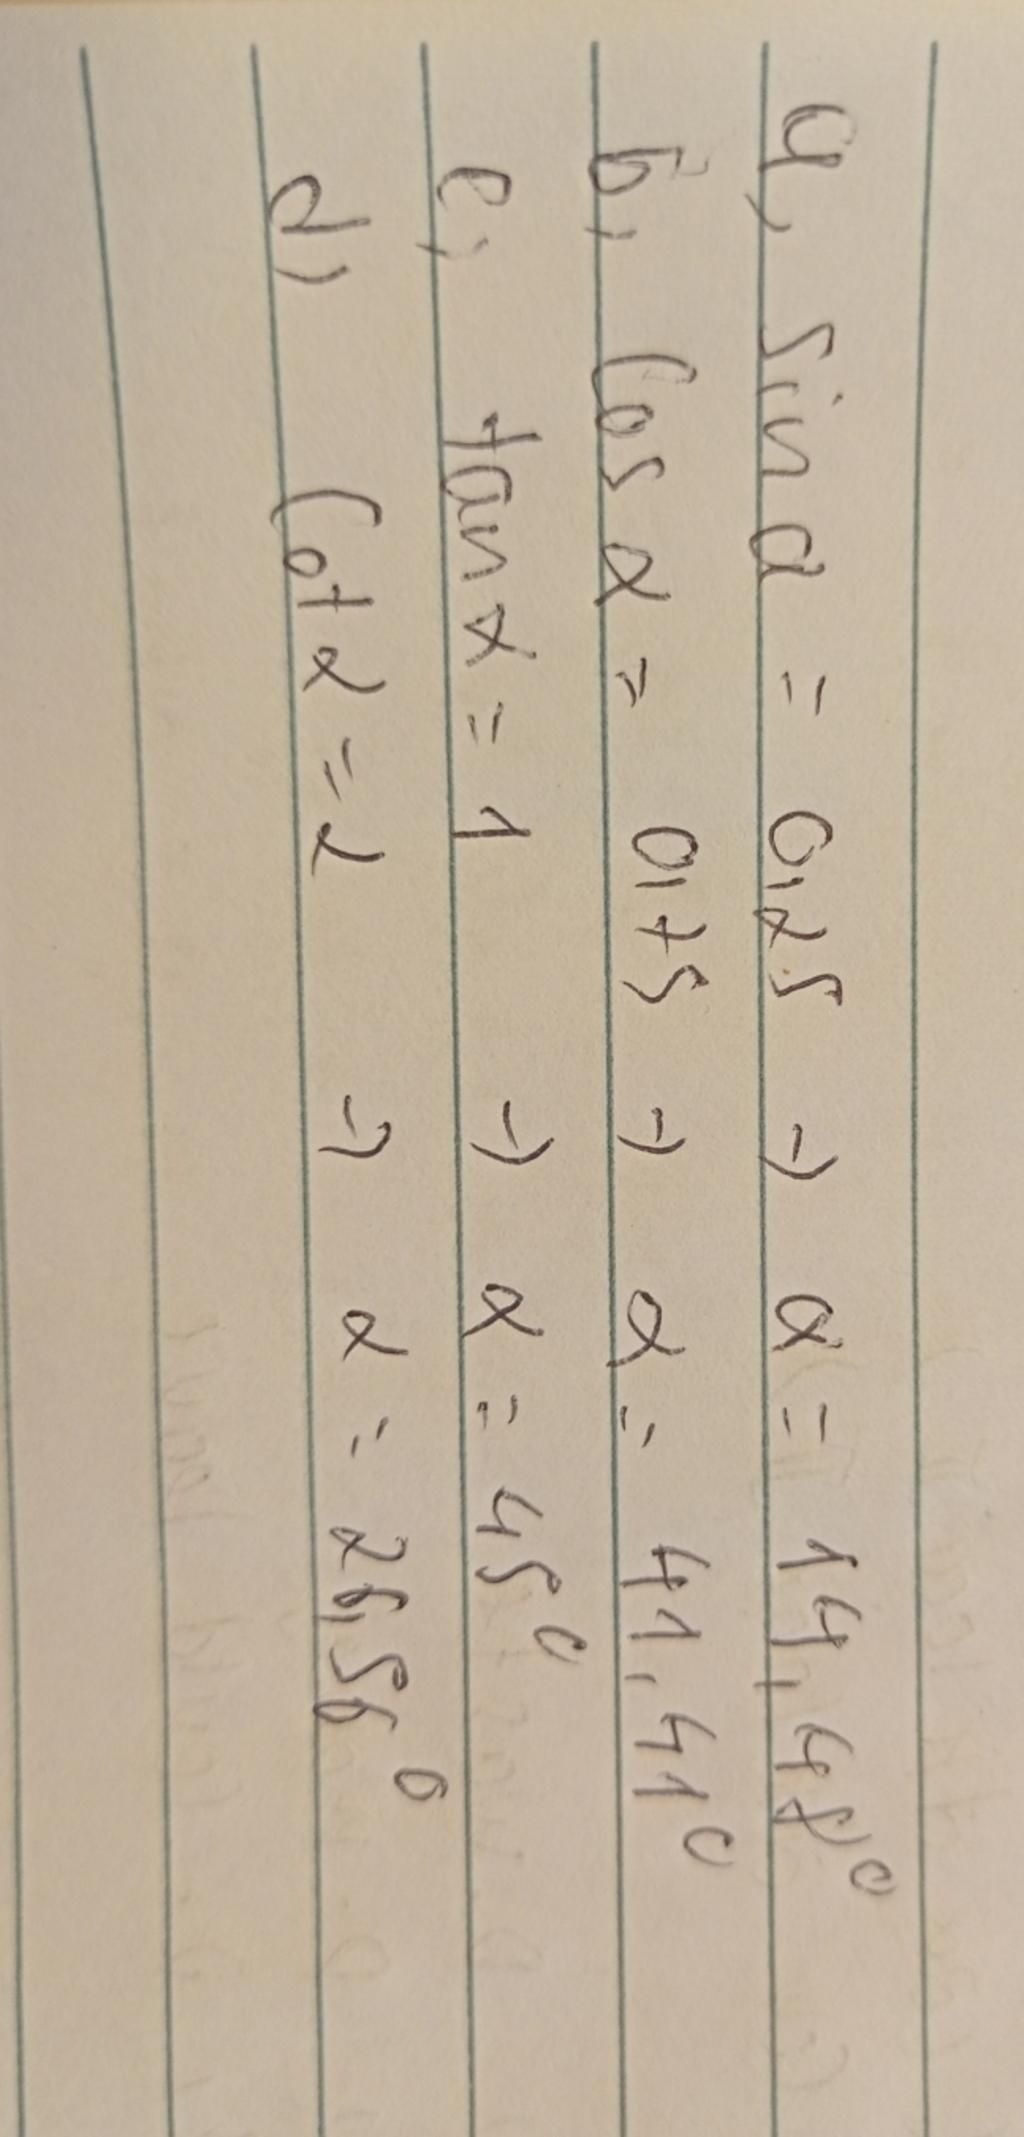 a, sin α = 0,25 → α = 14,48°
b, cos α = 0,75 → α = 41,41°
c, tan α = 1 → α = 45°
d, cot α = 2 → α = 26,56°